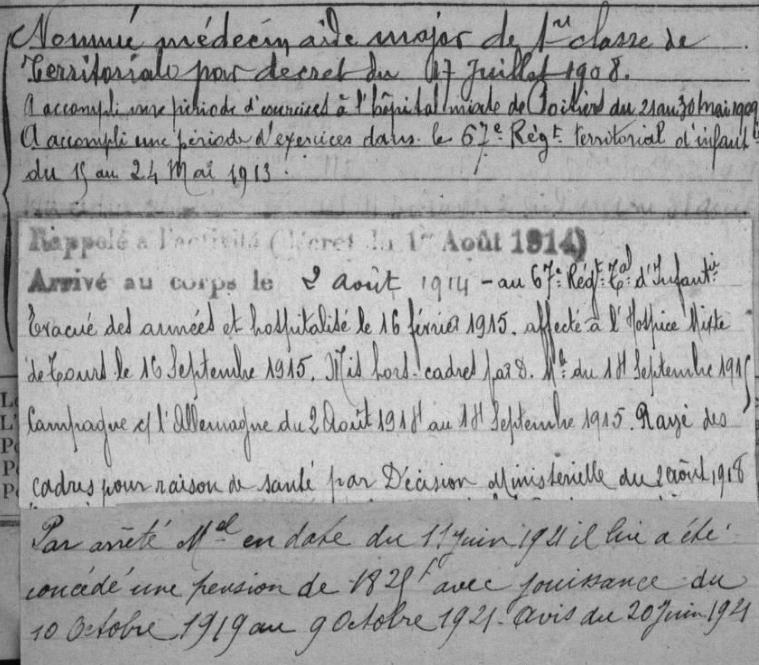 Nommé médecin aide major de 1re classe de
Territoriale par décret du 17 Juillet 1908.
A accompli une période d'exercices à l'hôpital mixte de Poitiers du 21 au 30 mai 1909
A accompli une période d'exercices dans le 67e Régt territorial d'infantie
du 15 au 24 Mai 1913.
Rappelé à l'activité (Décret du 1er Août 1914)
Arrivé au corps le 2 août 1914 - au 67e Régt Tal d'Infantie
Evacué des armées et hospitalisé le 16 février 1915. affecté à l'Hospice Mixte
de Tours le 16 Septembre 1915. Mis hors-cadres par D. Mle du 14 Septembre 1915
Campagne c/ l'Allemagne du 2 Août 1914 au 14 Septembre 1915. Rayé des
cadres pour raison de santé par Décision Ministérielle du 2 août 1918
Par arrêté Mel en date du 11 Juin 1921 il lui a été
concédé une pension de 1825 f avec jouissance du
10 Octobre 1919 au 9 Octobre 1921. Avis du 20 Juin 1921